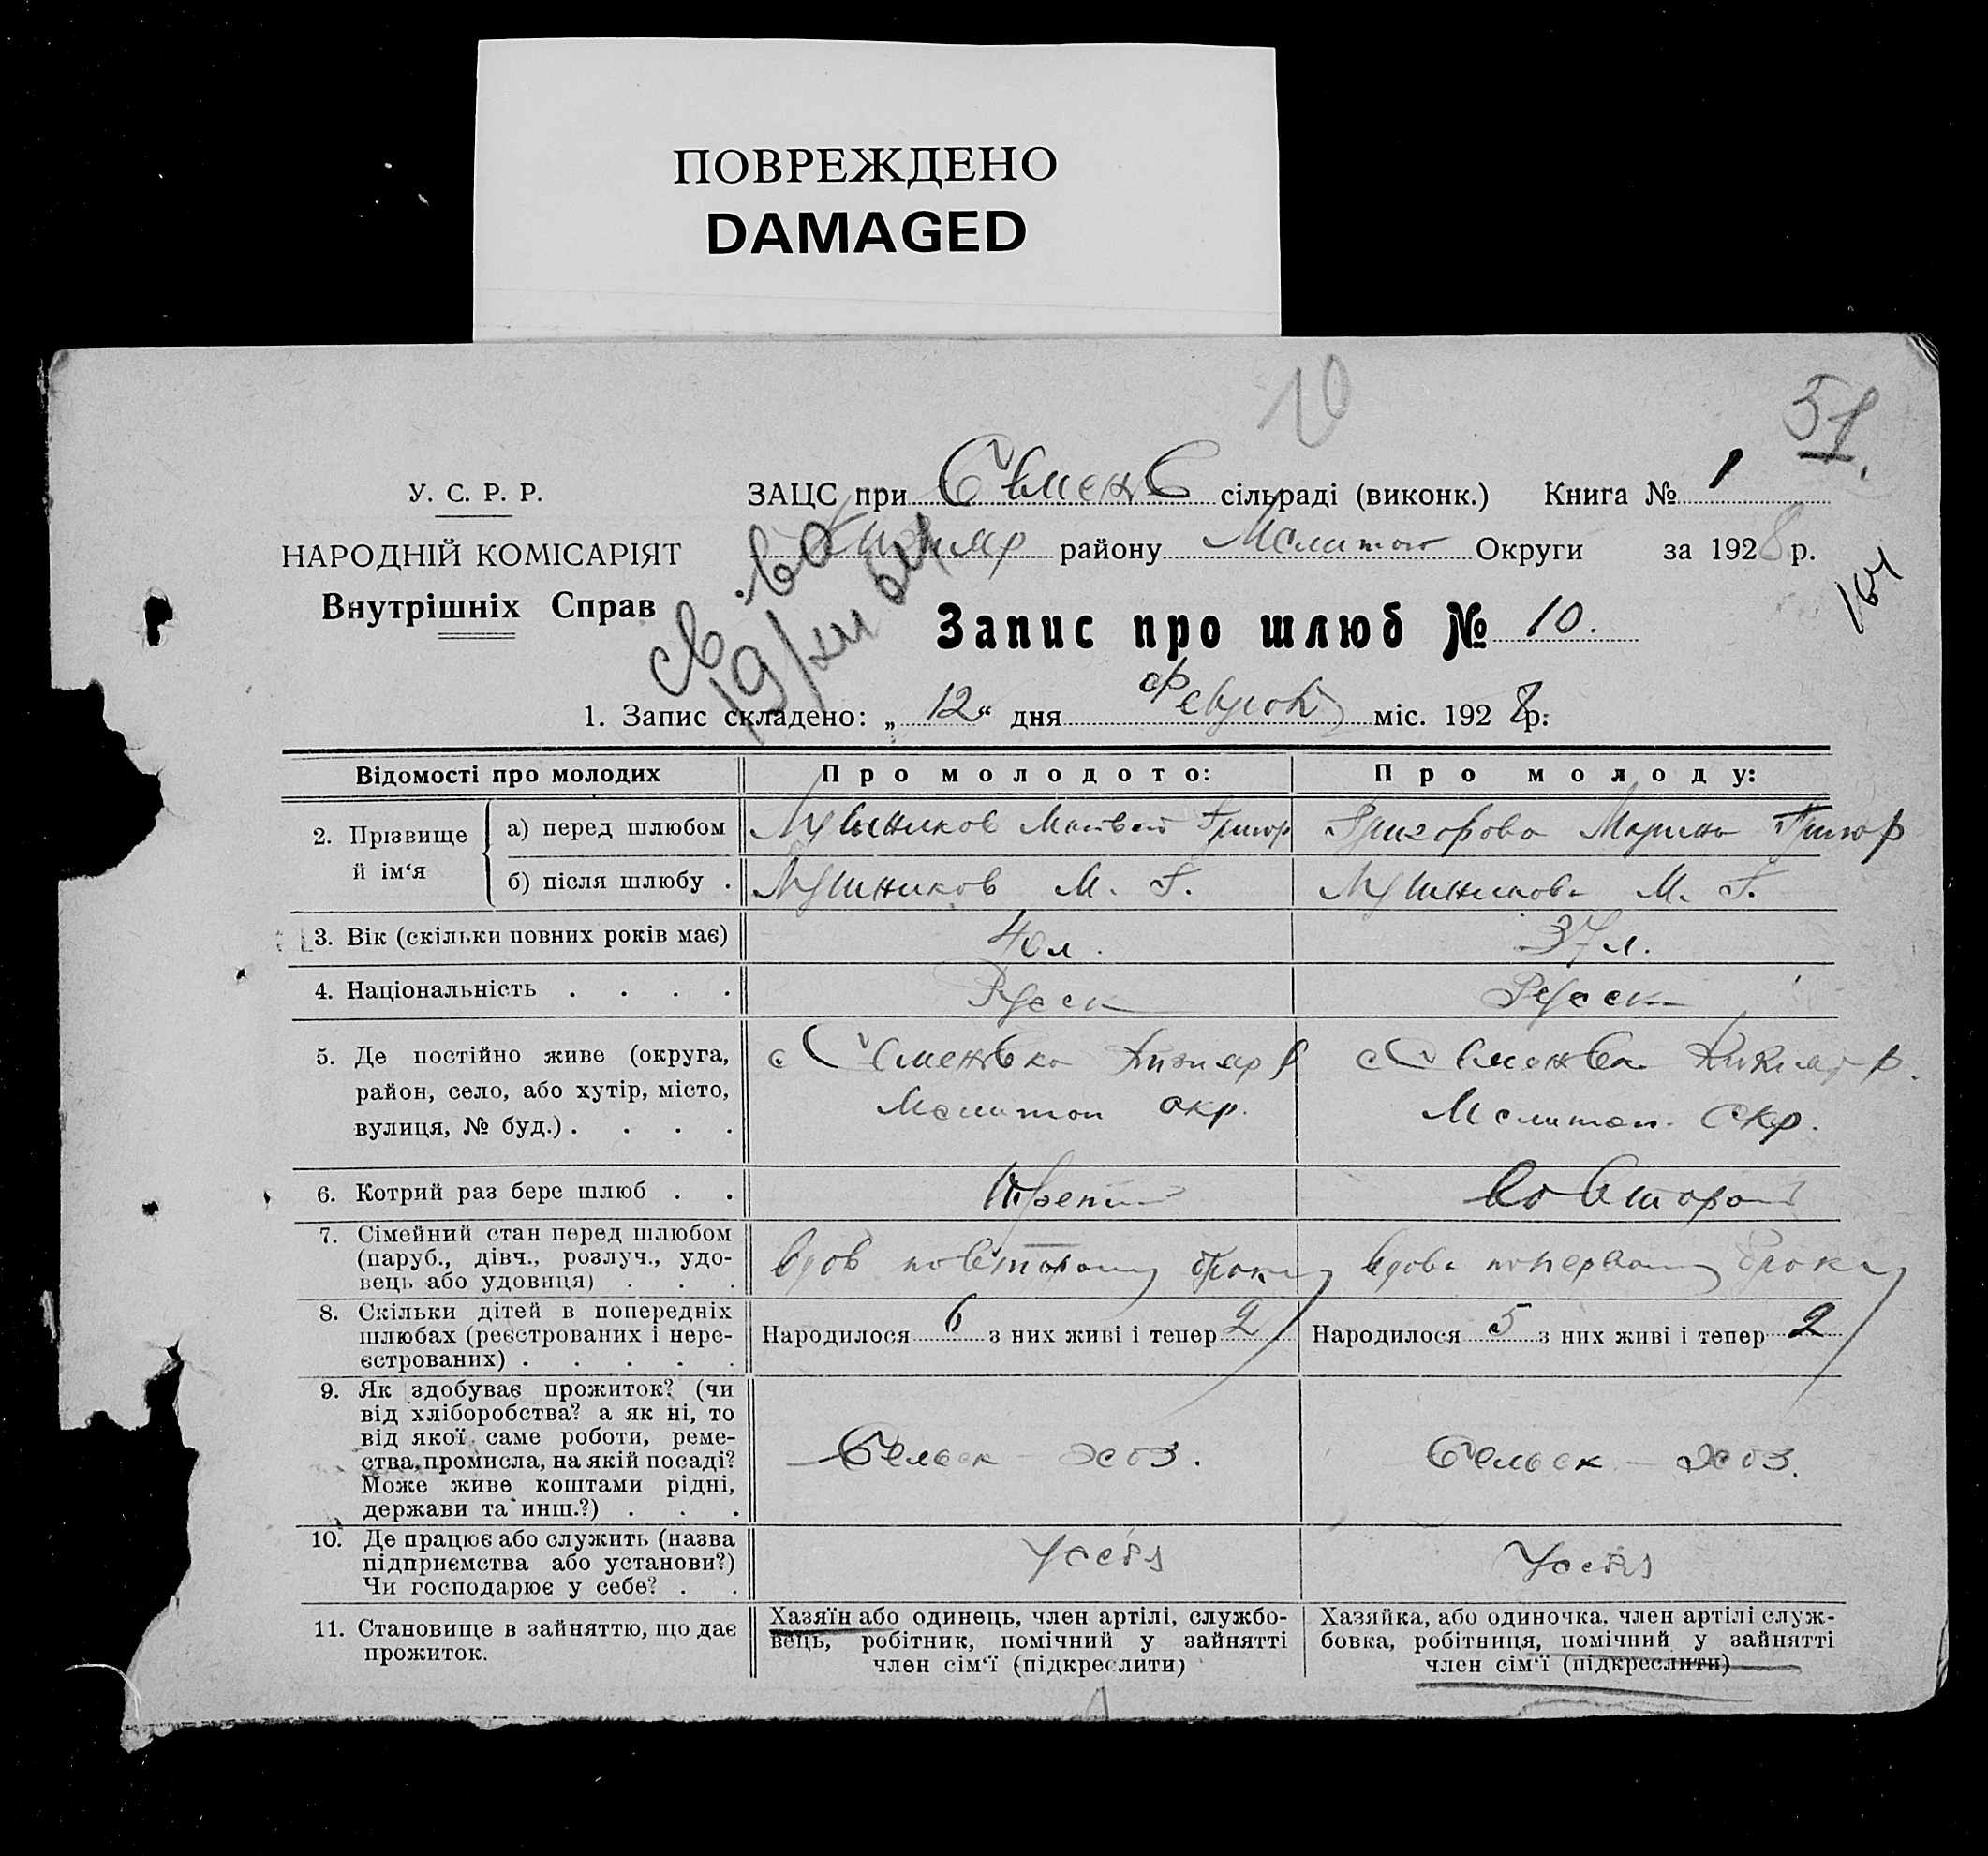 ПОВРЕЖДЕНО
DAMAGED
10
51.
У. С. Р. Р.
НАРОДНІЙ КОМІСАРІЯТ
Внутрішніх Справ
ЗАЦС при Семенів сільраді (виконк.) Книга № 1
Кизияр району Мелитоп Округи за 1928 р.
164
св-во
19/XII 64
Запис про шлюб № 10.
1. Запис складено: „ 12 “ дня Февраля міс. 1928 р.
Відомості про молодих Про молодото: Про молоду:
2. Прізвище й ім‘я
а) перед шлюбом Матвей Григор Григорова Марина Григор
б) після шлюбу . Мушников М. Г. Мушникова М. Г.
3. Вік (скільки повних років має) 40 л. 37 л.
4. Національність . . . . Русск Русск
5. Де постійно живе (округа, район, село, або хутір, місто, вулиця, № буд.) . . . .
с Семеновка Кизияр р
Мелитоп окр.
с Семеновка Кизияр р.
Мелитоп. Окр.
6. Котрий раз бере шлюб . . Третий Во второй
7. Сімейний стан перед шлюбом
(паруб., дівч., розлуч., удо-
вець або удовиця) . . .
вдов по второму браку вдова по первому браку
8. Скільки дітей в попередніх
шлюбах (реєстрованих і нере-
єстрованих) . . . . .
Народилося 6 з них живі і тепер 2 Народилося 5 з них живі і тепер 2
9. Як здобуває прожиток? (чи
від хліборобства? а як ні, то
від якої саме роботи, реме-
ства, промисла, на якій посаді?
Може живе коштами рідні,
держави та инш.?) . . .
Сельск - хоз. Сельск - хоз.
10. Де працює або служить (назва
підприємства або установи?)
Чи господарює у себе? . .
У себя У себя
11. Становище в зайняттю, що дає
прожиток.
Хазяїн або одинець, член артілі, службо-
вець, робітник, помічний у зайнятті
член сім‘ї (підкреслити)
Хазяйка, або одиночка, член артілі служ-
бовка, робітниця, помічний у зайнятті
член сім‘ї (підкреслити)